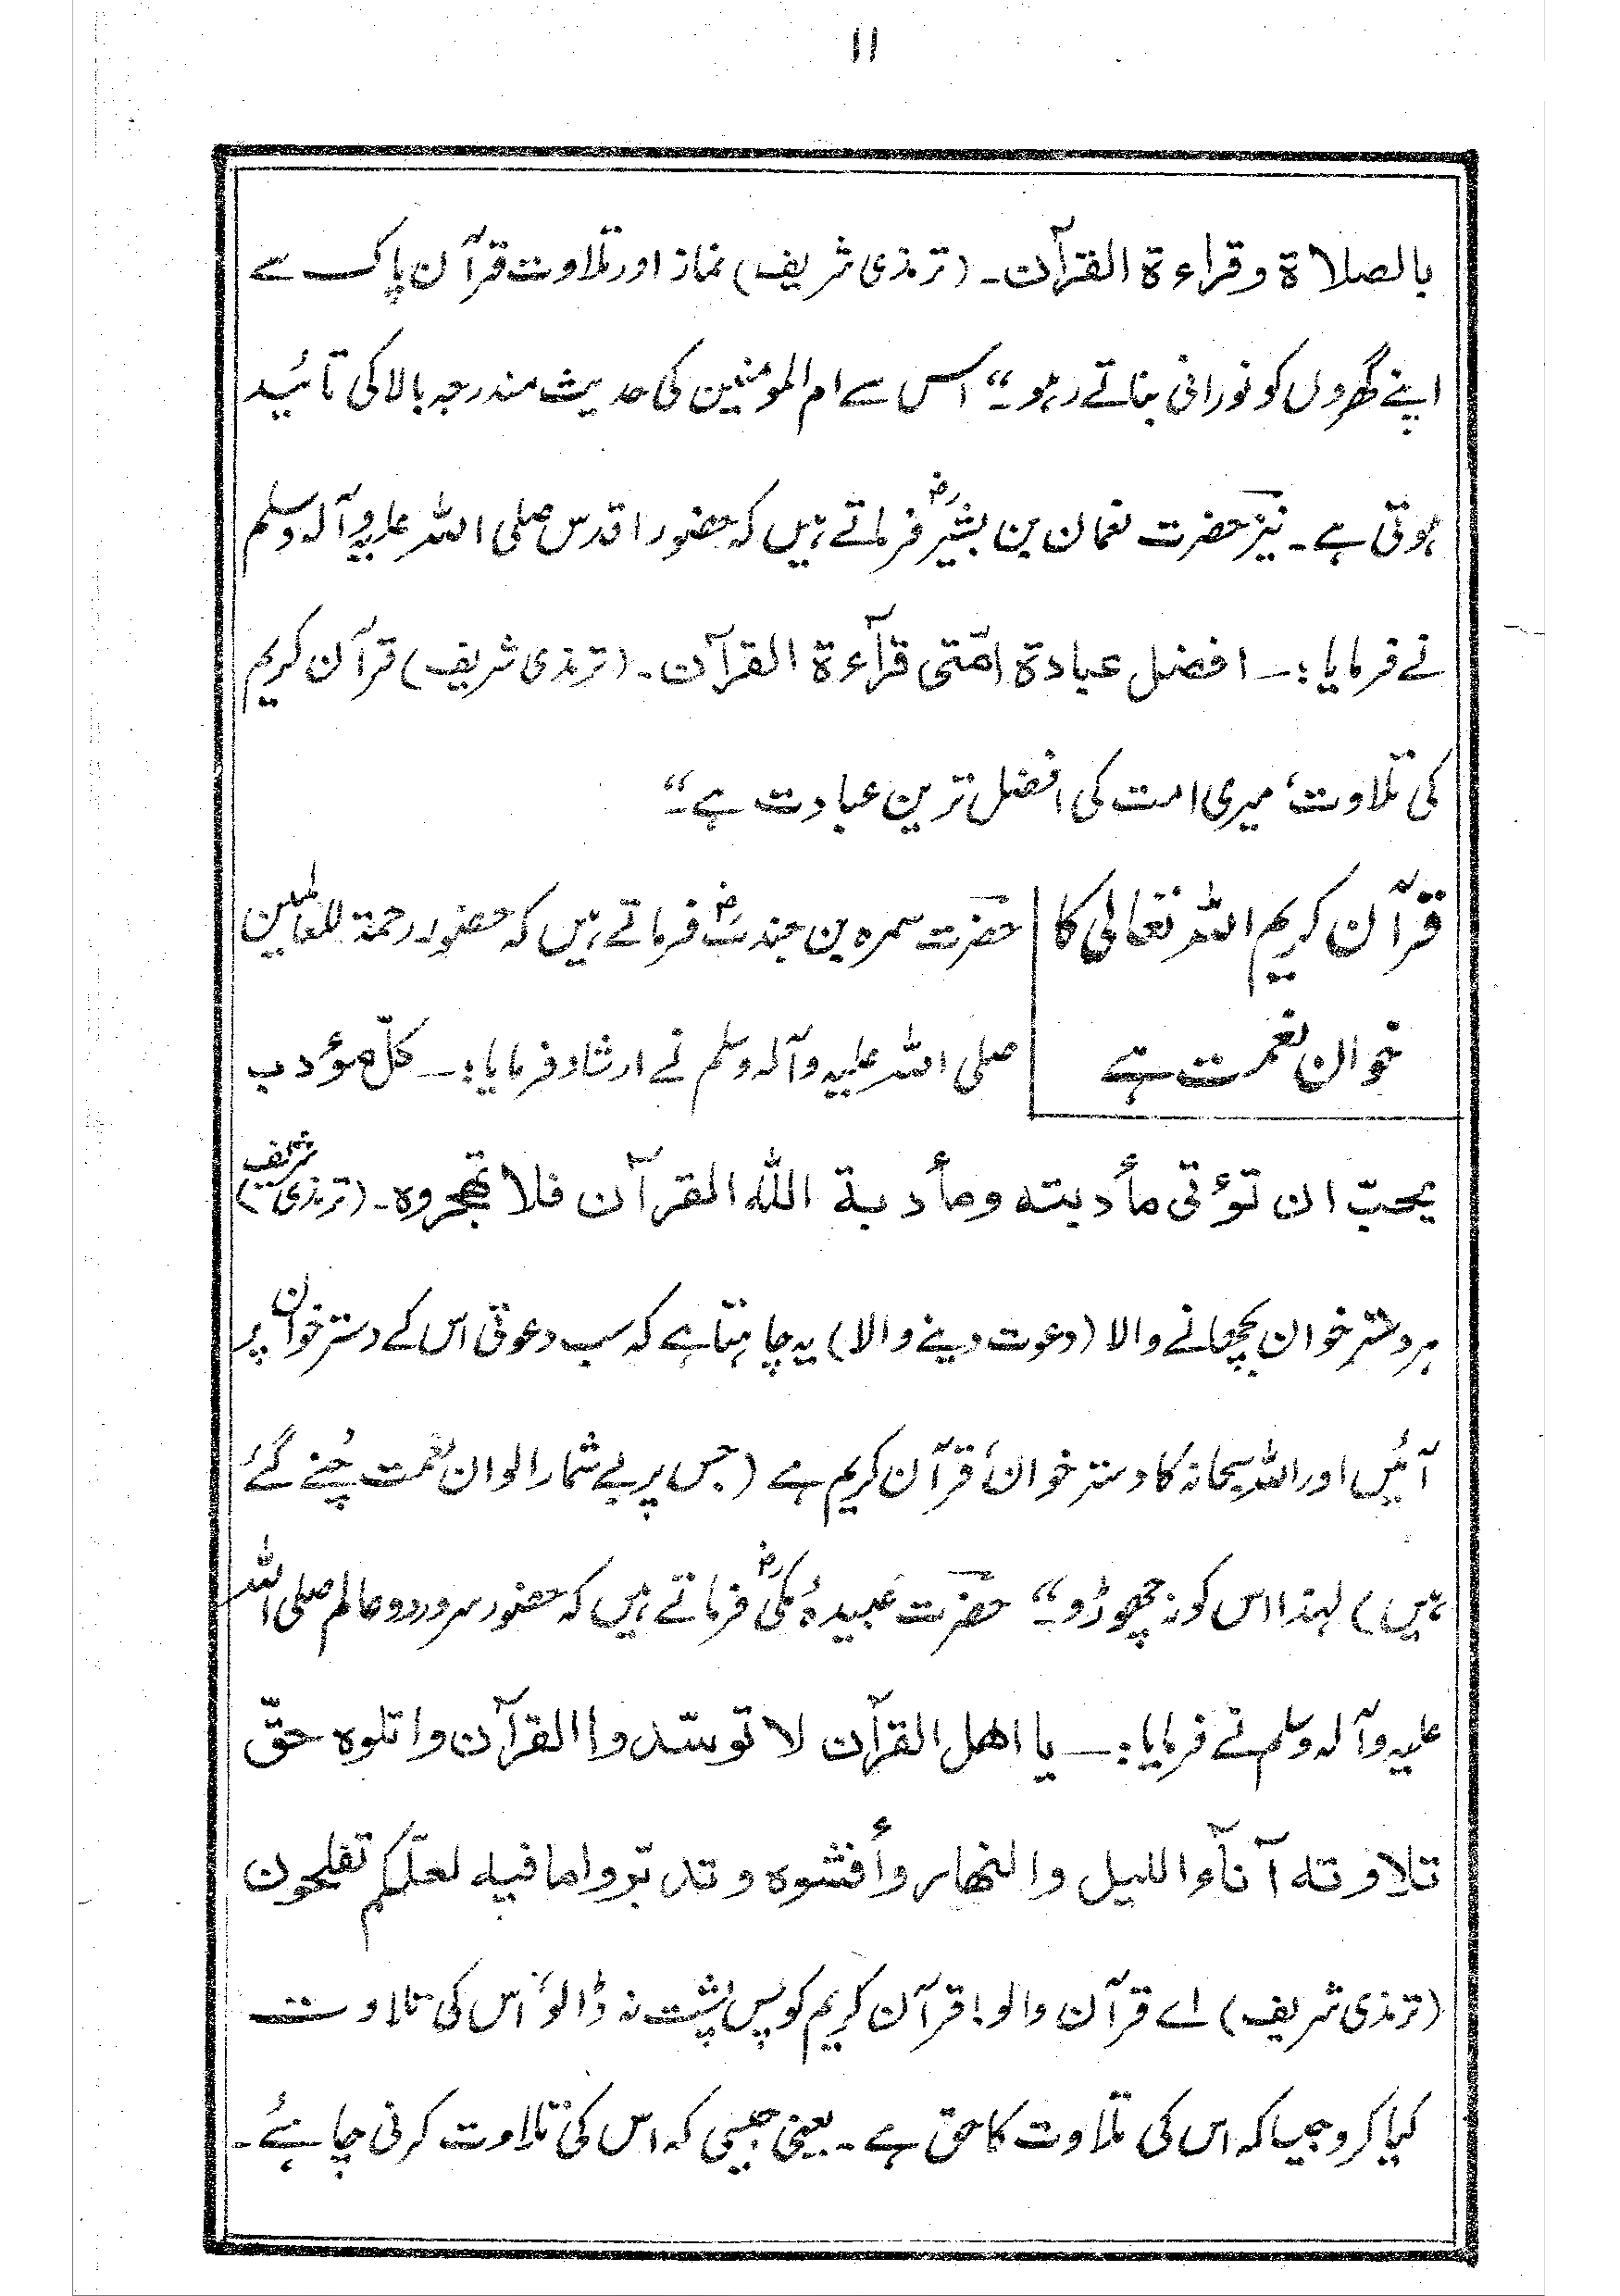 ۱۱
بالصلاة وقراءة القرآن۔ (ترمذی شریف) نماز اور تلاوت قرآن پاک سے
اپنے گھروں کو نورانی بناتے رہو۔“ اس سے ام المومنین کی حدیث مندرجہ بالا کی تائید
ہوتی ہے۔ نیز حضرت نعمان بن بشیرؓ فرماتے ہیں کہ حضور اقدس صلی اللہ علیہ وآلہ وسلم
نے فرمایا:۔ افضل عبادة امّتی قرآءة القرآن۔ (ترمذی شریف) قرآن کریم
کی تلاوت، میری امت کی افضل ترین عبادت ہے۔“
قرآن کریم اللہ تعالیٰ کا
خوان نعمت ہے
حضرت سمرہ بن جندبؓ فرماتے ہیں کہ حضور رحمۃ للعالمین
صلی اللہ علیہ وآلہ وسلم نے ارشاد فرمایا:۔ کلّ مؤدب
یحبّ ان تؤتی مأدبته ومأدبة الله القرآن فلا تهجروه۔ (ترمذی شریف)
ہر دسترخوان بچھانے والا (دعوت دینے والا) یہ چاہتا ہے کہ سب دعوتی اس کے دسترخوان پر
آئیں اور اللہ سبحانہ کا دسترخوان قرآن کریم ہے (جس پر بے شمار الوان نعمت چُنے گئے
ہیں) لہٰذا اس کو نہ چھوڑو۔“ حضرت عُبیدہ مُلیکیؓ فرماتے ہیں کہ حضور سرور دو عالم صلی اللہ
علیہ وآلہ وسلم نے فرمایا:۔ یا اهل القرآن لا توسّدوا القرآن واتلوه حقّ
تلاوته آنآء اللیل والنهار وأفشوه وتدبّروا ما فیه لعلّکم تفلحون
(ترمذی شریف) اے قرآن والو! قرآن کریم کو پس پُشت نہ ڈالو، اُس کی تلاوت
کیا کرو جیسا کہ اس کی تلاوت کا حق ہے۔ یعنی جیسی کہ اس کی تلاوت کرنی چاہئے۔